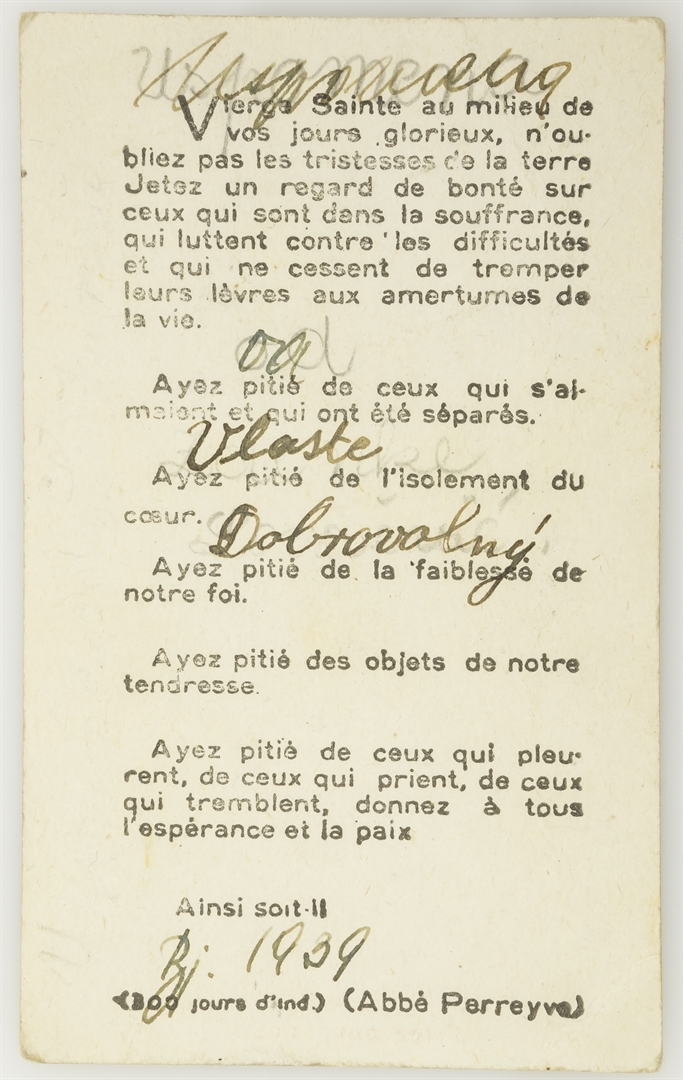 Uspomena
Vierge Sainte au milieu de
vos jours glorieux, n'ou-
bliez pas les tristesses de la terre
Jetez un regard de bonté sur
ceux qui sont dans la souffrance,
qui luttent contre les difficultés
et qui ne cessent de tremper
leurs lèvres aux amertumes de
la vie.
od
Ayez pitié de ceux qui s'ai-
maient et qui ont été séparés.
Vlaste
Ayez pitié de l'isolement du
cœur.
Dobrovolný
Ayez pitié de la faiblesse de
notre foi.
Ayez pitié des objets de notre
tendresse.
Ayez pitié de ceux qui pleu-
rent, de ceux qui prient, de ceux
qui tremblent, donnez à tous
l'espérance et la paix
Ainsi soit-il
Bj. 1939
(300 jours d'ind.) (Abbé Perreyve)